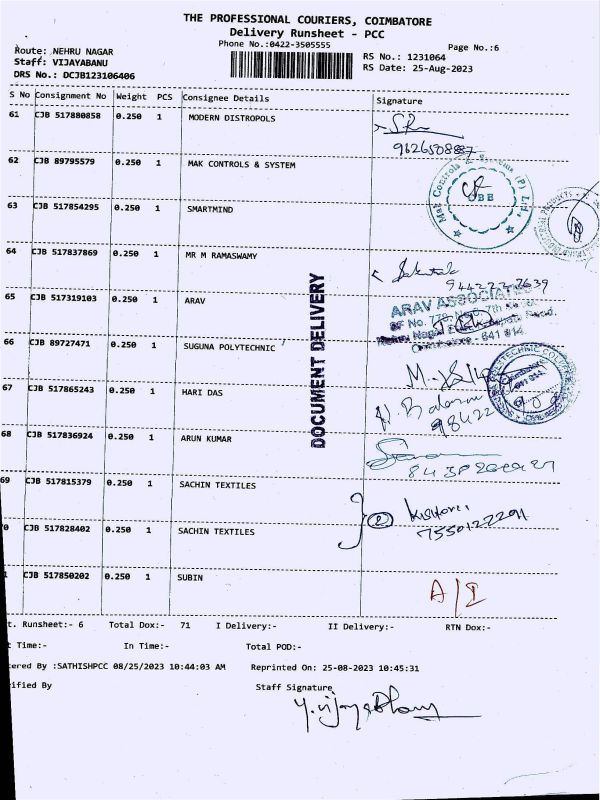 THE PROFESSIONAL COURIERS, COIMBATORE
Delivery Runsheet - PCC
Phone No.:0422-3505555
Page No.:6
Route: NEHRU NAGAR
Staff: VIJAYABANU
DRS No.: DCJB123106406
RS No.: 1231064
RS Date: 25-Aug-2023
S No Consignment No Weight PCS Consignee Details Signature
61 CJB 517880858 0.250 1 MODERN DISTROPOLS
9626508887
62 CJB 89795579 0.250 1 MAK CONTROLS & SYSTEM
63 CJB 517854295 0.250 1 SMARTMIND
64 CJB 517837869 0.250 1 MR M RAMASWAMY
DOCUMENT DELIVERY
65 CJB 517319103 0.250 1 ARAV
ARAV ASSOCIATES
Coimbatore - 641 014.
66 CJB 89727471 0.250 1 SUGUNA POLYTECHNIC
67 CJB 517865243 0.250 1 HARI DAS
98422
68 CJB 517836924 0.250 1 ARUN KUMAR
69 CJB 517815379 0.250 1 SACHIN TEXTILES
2 Kishore
7550122291
0 CJB 517828402 0.250 1 SACHIN TEXTILES
1 CJB 517850202 0.250 1 SUBIN
A/I
t. Runsheet:- 6 Total Dox:- 71 I Delivery:- II Delivery:- RTN Dox:-
t Time:- In Time:- Total POD:-
tered By :SATHISHPCC 08/25/2023 10:44:03 AM Reprinted On: 25-08-2023 10:45:31
rified By Staff Signature